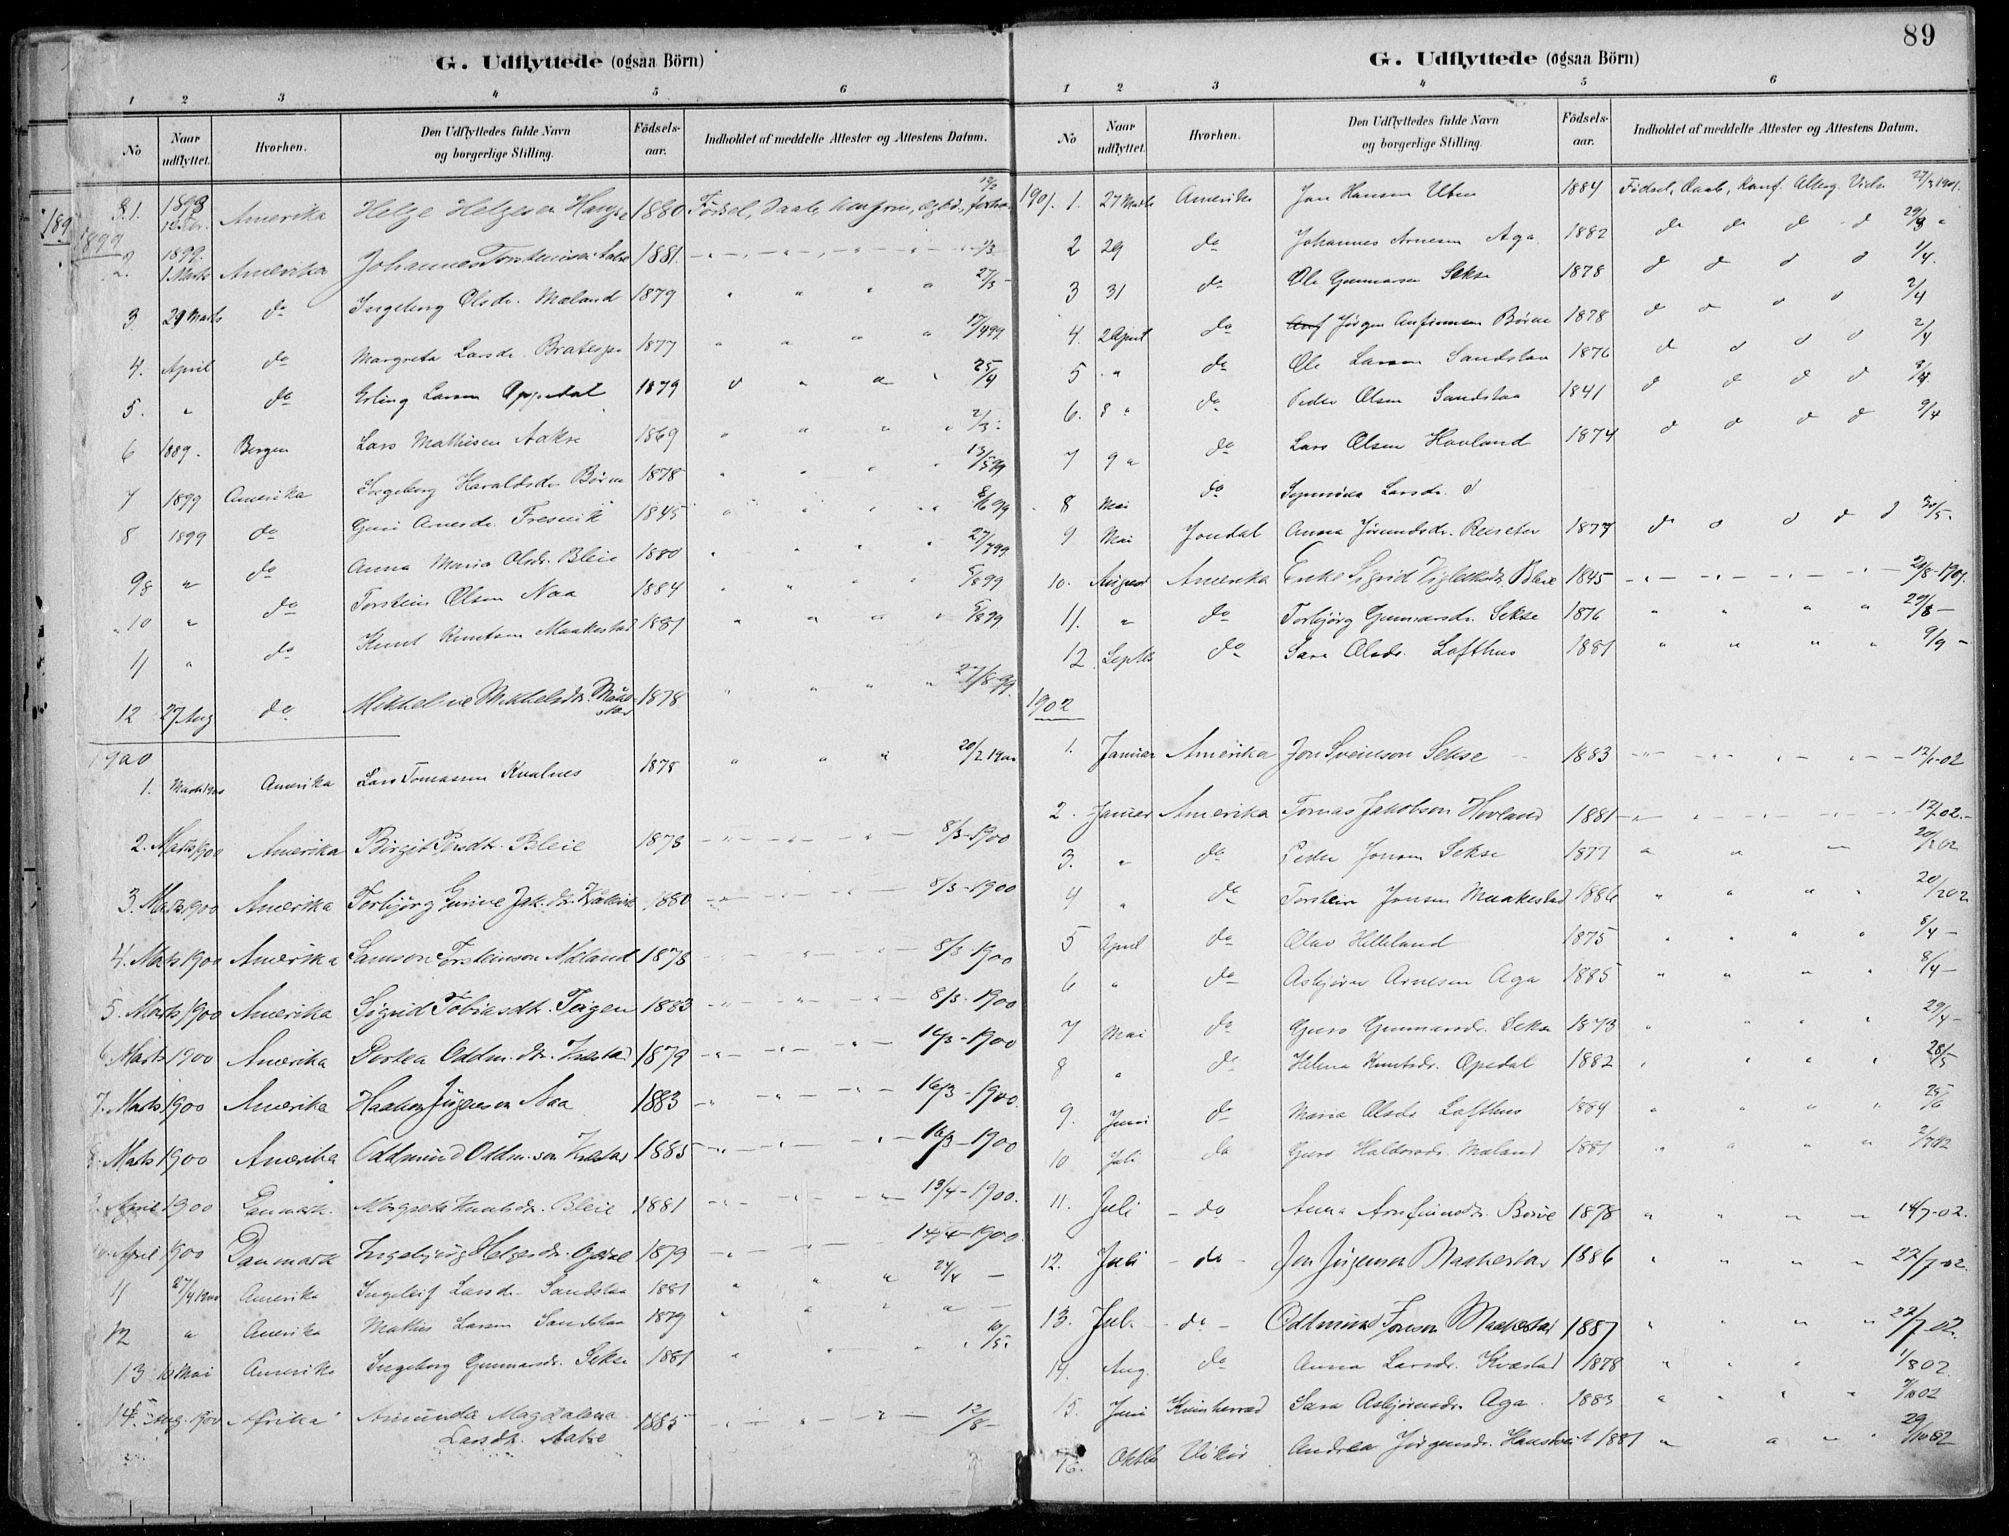 G. Udflyttede (ogsaa Börn)
1 2 3 4 5 6
No Naar udflyttet. Hvorhen. Den Udflyttedes fulde Navn og borgerlige Stilling. Födsels-aar. Indholdet af meddelte Attester og Attestens Datum.
1899
1. 1898 Amerika Helge Helgesen 1880 Fødsel, Daab,
2. 1899 1 Marts Amerika Johannes Torsteinsen 1881 1/3
3 29 Marts do Ingeborg Olsdr. Mæland 1879 27/3
4. April do Margreta Larsdr. 1877 17/4 99
5. " do Erling Larsen Oppedal 1879 25/4
6 1889. Bergen Lars Mathisen Aakre 1869 2/3
7 1899 Amerika Ingeborg Haraldsdr. Børve 1878 13/5 99
8 1899 do Guri Arnesdr. Fresvik 1845 8/6 99
9 " do Anna Maria Olsdr. Bleie 1880 27/7 99
10 " do Torstein Olsen Naa 1884 /8 99
11 " do Knut Knutsen Maakestad 1881 /8 99
12 27 Aug do Mikkeline Mikkelsdtr. 1878 27/8-99.
1900
1. Marts 1900 Amerika Lars Tomassen Kvalnes 1878 20/2 1900
2. Marts 1900 Amerika Birgit Persdtr. Bleie 1878 8/3-1900
3. Marts 1900 Amerika Torbjörg Gurine Jak.dtr. 1880 8/3-1900
4. Marts 1900 Amerika Samson Torsteinson Mæland 1878 8/3-1900
5. Marts 1900 Amerika Sigrid Tobiasdtr. Teigen 1883 8/3-1900
6. Marts 1900 Amerika Pertea Oddm.dtr. 1879 16/3-1900
7. Marts 1900 Amerika Haakon Jörgenson Naa 1883 16/3-1900.
8. Marts 1900 Amerika Oddmund Oddm.son 1885 16/3-1900
April 1900 Danmark. Margreta Knutsdtr. Bleie 1881 13/4-1900.
April 1900 Danmark Ingebjörg Helgesdr. 1879 14/4-1900.
11 27/4 1900 Amerika Ingeleif Larsdr. Sandstaa 1881 24/4 —
12 " Amerika Mathis Larsen Sandstaa 1879 " —
13 10 Mai Amerika Ingeborg Gunnarsdr. Sekse 1881 10/5.
14. Aug. 1900 Afrika Amunda Magdalena 1885 12/8-
Larsdtr. Aakre
89
G. Udflyttede (ogsaa Börn)
1 2 3 4 5 6
No Naar udflyttet. Hvorhen. Den Udflyttedes fulde Navn og borgerlige Stilling. Födsels-aar. Indholdet af meddelte Attester og Attestens Datum.
1901. 1. 27 Marts Amerika Jon Hansen Utne 1884 Födsel, Daab, Konf. Alterg. 27/3 1901.
2 29 do Johannes Arnesen Aga. 1882 do do do d 29/3 "
3 31 do Ole Gunnarsen Sekse 1878 d d d d 1/4.
4. 2 April do Jørgen Anfinnsen Børve 1878 d d d d 2/4
5 " do Ole Larsen Sandstaa 1876 d d d d 2/4
6. 8 " do Peder Olsen Sandstaa 1841 d d d d 8/4
7 9 " do Lars Olsen Hovland 1874 d d d d 9/4
8 Mai do Larsdr. d
9 Mai Jondal Anna Jørundsdr. Reiseter 1877 d d d d d 30/5.
10. August Amerika Enke Sigrid Vigleiksdtr. Bleie 1845 20/8-1901.
11. " do Torbjörg Gunnarsdr. Sekse 1876 29/8 —
12 Septbr do Sara Olsdr. Lofthus 1881 9/9 —
1902
1. Januar Amerika Jon Sveinson Sekse 1883 12/1-02
2. Januar Amerika Tomas Jakobson Hovland 1881 12/1 02.
3. " do Peder Jonsen Sekse 1877 20/2 02
4 " do Torstein Jonsen Maakestad 1886 20/2 02
5 April do Olav Helleland 1875 8/4 —
6 " do Asbjørn Arnesen Aga 1885 8/4 —
7 Mai do Guro Gunnarsdr. Sekse 1873 29/4 —
8 " do Helena Knutsdr. Opedal 1882 28/5
9. Juni do Maria Olsdr. Lofthus 1884 25/6
10 Juli do Guro Haldorsdr. Mæland 1881 2/7 02
11. Juli do Anna Arnfinnsdtr. Börve 1878 14/7-02.
12. Juli do Jon Jörgenson Maakestad 1886 22/7-02.
13. Juli do Oddmund Jonson Maakestad 1887 22/7-02.
14. Aug. do Anna Larsdr. Kvæstad 1878 1/8 02
15. Juni Kvinherrad Sara Asbjørnsdr. Aga 1883 /10 02
16. Oktbr Vikør Andrea Jørgensdr. 1881 29/10 02